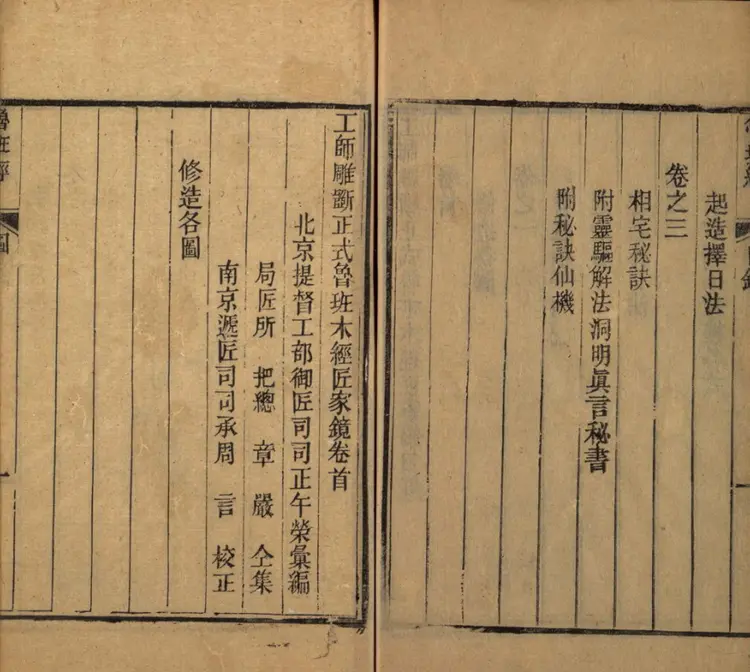 起造擇日法
卷之三
相宅秘訣
附靈驅解法洞明眞言秘書
附秘訣仙機
工師雕斵正式魯班木經匠家鏡卷首
北京提督工部御匠司司正午榮彙編
局匠所 把總 章 嚴 仝集
南京遞匠司司承周 言 校正
修造各圖
魯班經 圖 一